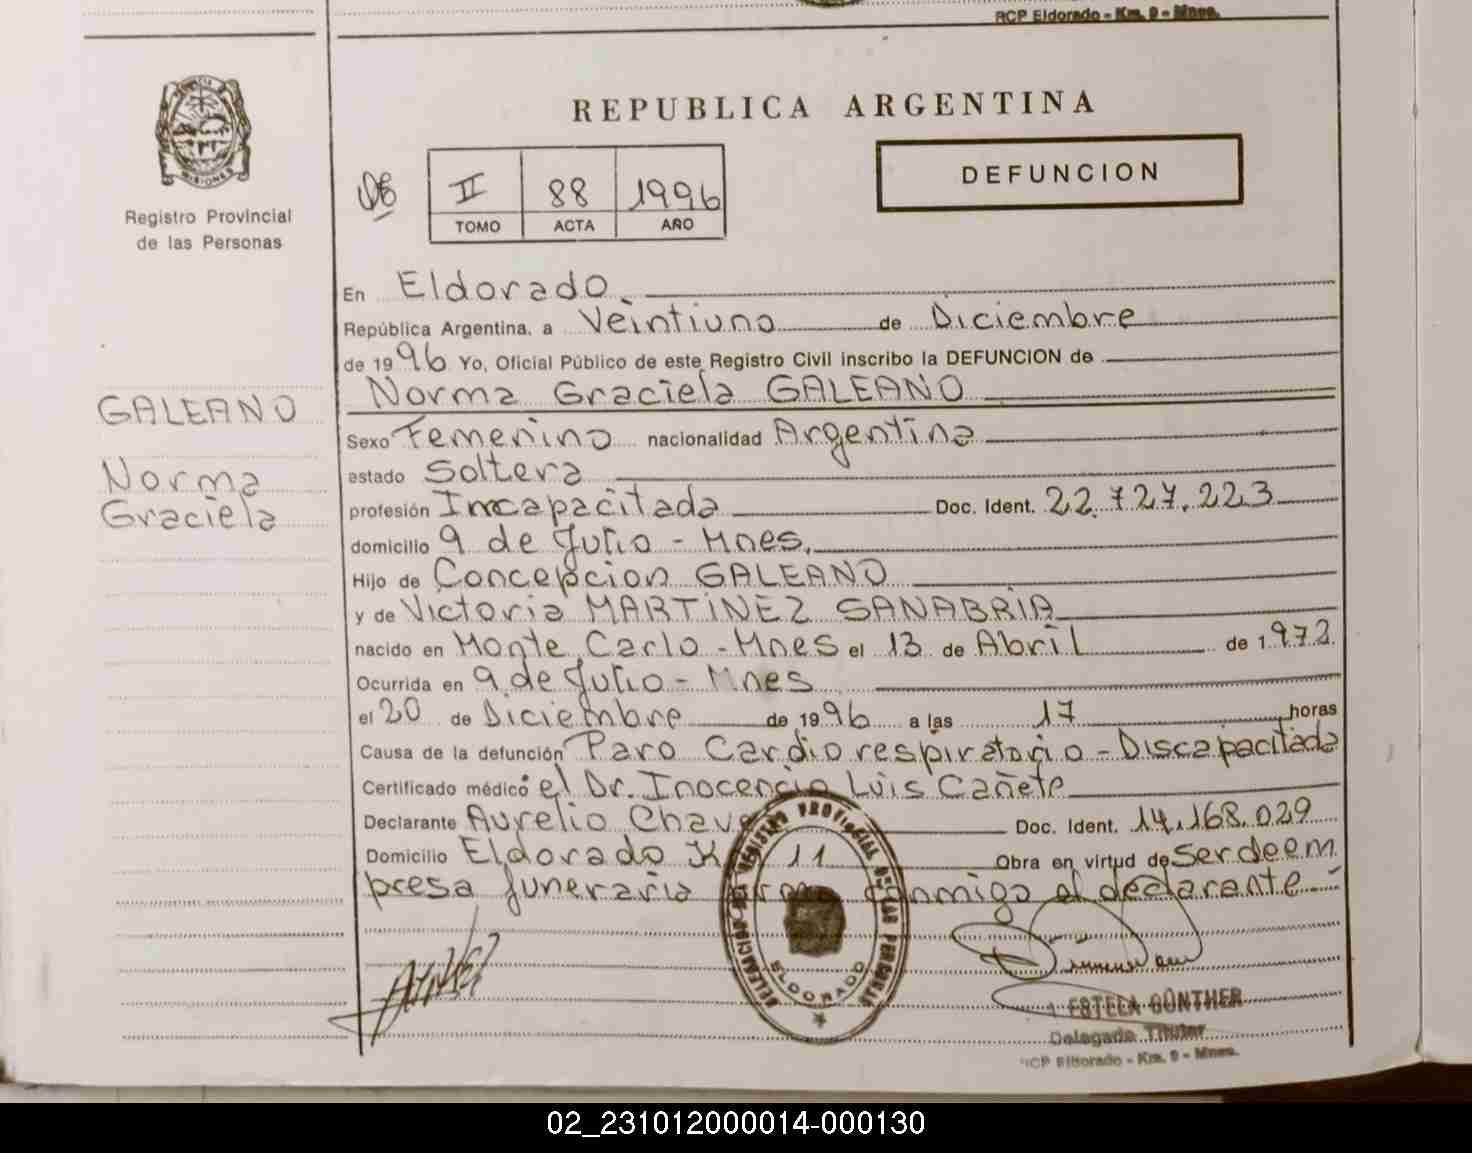 RCP Eldorado - Km. 9 - Mnes.
MISIONES
Registro Provincial
de las Personas
REPUBLICA ARGENTINA
DEFUNCION
II 88 1996
TOMO ACTA AÑO
En Eldorado
República Argentina, a Veintiuno de Diciembre
de 1996 Yo, Oficial Público de este Registro Civil inscribo la DEFUNCION de
Norma Graciela GALEANO
GALEANO
Norma
Graciela
Sexo Femenino nacionalidad Argentina
estado Soltera
profesión Incapacitada Doc. Ident. 22.727.223
domicilio 9 de Julio - Mnes.
Hijo de Concepcion GALEANO
y de Victoria MARTINEZ SANABRIA
nacido en Monte Carlo - Mnes el 13 de Abril de 1.972
Ocurrida en 9 de Julio - Mnes
el 20 de Diciembre de 1996 a las 17 horas
Causa de la defunción Paro Cardiorespiratorio - Discapacitada
Certificado médico el Dr. Inocencio Luis Cañete
Declarante Aurelio Chave Doc. Ident. 14.168.029
Domicilio Eldorado K 11 Obra en virtud de Ser de em
presa funeraria conmigo el declarante
DELEGACION DEL REGISTRO PROVINCIAL DE LAS PERSONAS
ELDORADO
ESTELA GÜNTHER
Delegada Titular
RCP Eldorado - Km. 9 - Mnes.
02_231012000014-000130